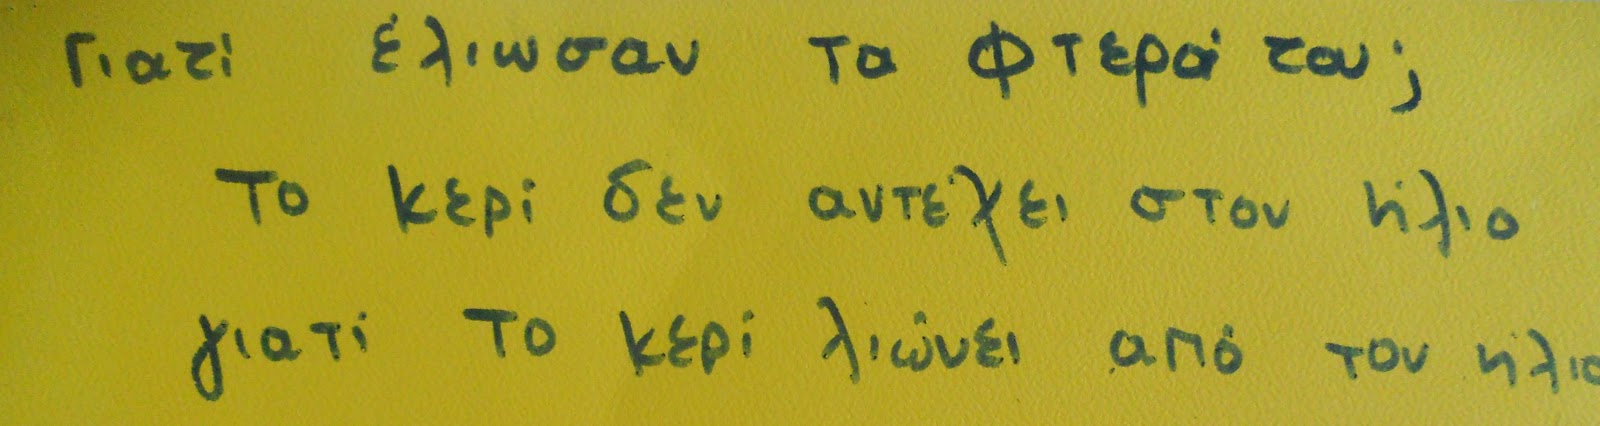 Γιατί έλιωσαν τα φτερά του;
Το κερί δεν αντέχει στον ήλιο
γιατί το κερί λιώνει από τον ήλιο